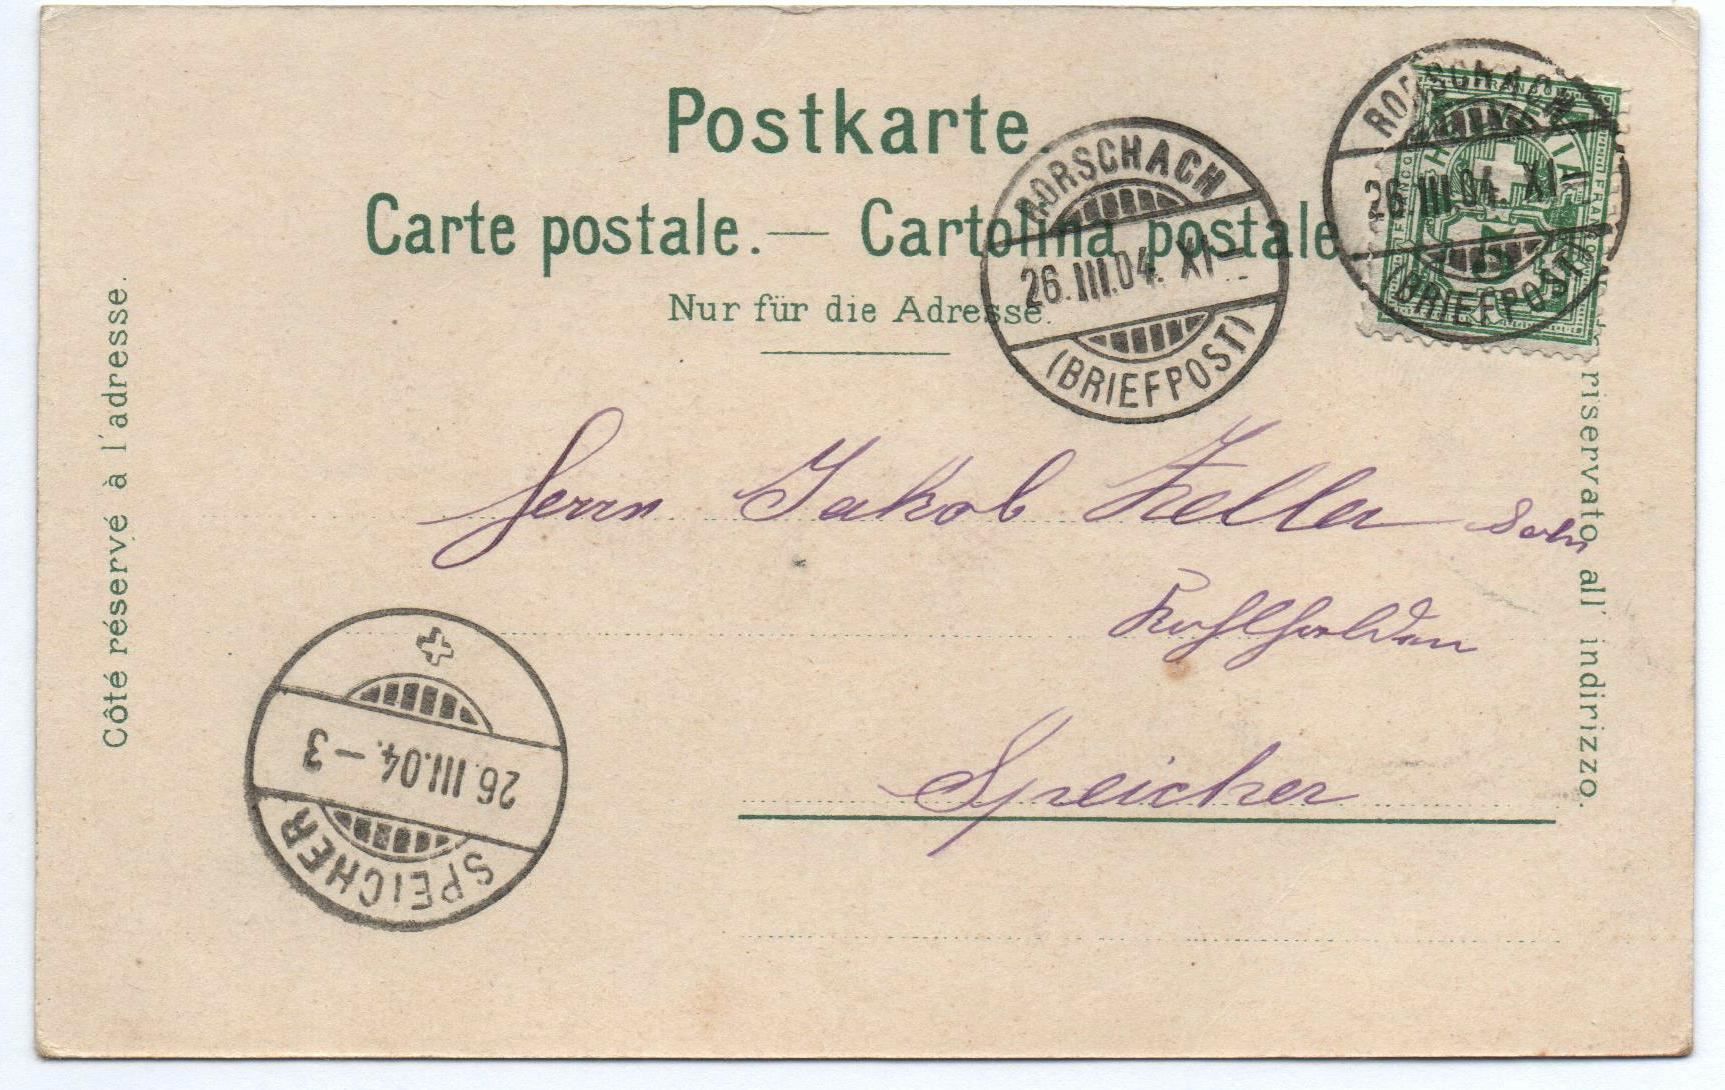 Postkarte.
Carte postale. — Cartolina postale.
Nur für die Adresse.
Côté réservé à l'adresse.
riservato all' indirizzo.
RORSCHACH
26.III.04. XI–
(BRIEFPOST)
RORSCHACH
26.III.04. XI–
(BRIEFPOST)
FRANCO
HELVETIA
5
Herrn Jakob Zeller Sohn
Kohlhalden
Speicher
SPEICHER
26.III.04.–3